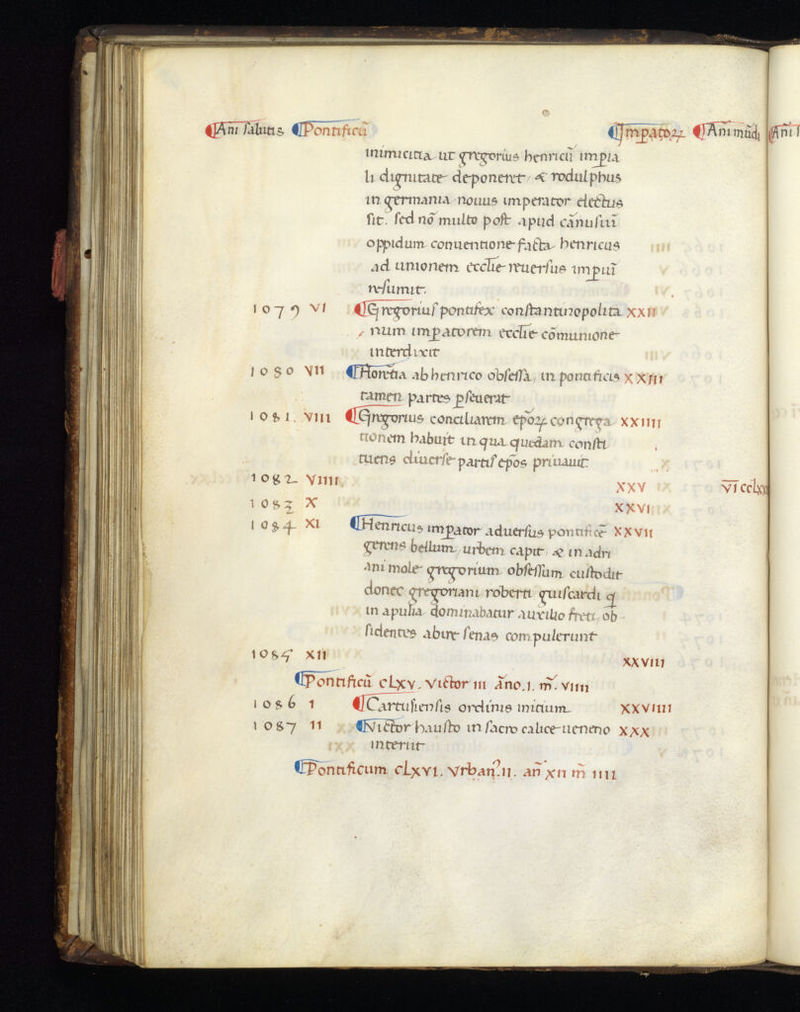 Ani salutis Pontificũ Impatoꝝ Ani mũdi
inimicitia ut gregorius henricũ impia
li dignitate deponeret & rodulphus
in germania nouus imperator electus
sit. sed nõ multo post apud cãnusiũ
oppidum conuentione facta henricus
ad unionem ecclie reuersus impiũ
resumit.
1079 VI Gregorius pontifex constantinopolita XXII
num imperatorem ecclie cõmunione
interdixit
1080 VII Horẽtia ab henrico obsessa, in pontificis XXIII
tamen partes pseuerat
1081. VIII Gregorius conciliarem epõꝝ congrega XXIIII
tionem habuit in qua quedam consti
tuens diuerse partis epõs priuauit
1082 VIIII XXV VI cclxx
1083 X XXVI
1084 XI Henricus impator aduersus pontificẽ XXVII
gerens bellum urbem capit & in adri
ani mole gregorium obsessum custodit
donec gregoriani roberti guiscardi q
in apulia dominabatur auxilio freti, ob
sidentes abire senas compulerunt
1085 XII XXVIII
Pontificũ CLXV. Victor III ãno. I. m̃. VIIII
1086 I Cartusiensis ordinis initium XXVIIII
1087 II Victor hausto in sacro calice ueneno XXX
interiit
Pontificum CLXVI. Vrban9. II. añ XII m̃ IIII